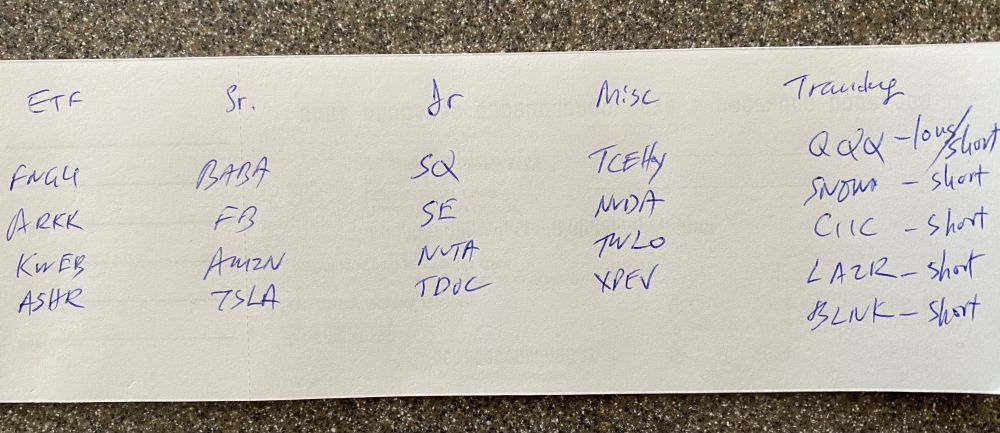 ETF Sr. Jr Misc Trading
FNGU BABA SQ TCEHY QQQ - long/short
ARKK FB SE NVDA SNOW - short
KWEB AMZN NVTA TWLO CIIC - short
ASHR TSLA TDOC XPEV LAZR - short
BLNK - short